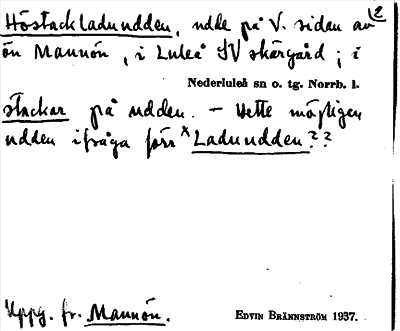 2
Höstackladundden, udde på V. sidan av
ön Mannön, i Luleå SV skärgård; i
Nederluleå sn o. tg. Norrb. l.
stackar på udden. – Hette möjligen
udden ifråga förr ˣLadundden??
Uppg. fr. Mannön.
EDVIN BRÄNNSTRÖM 1937.